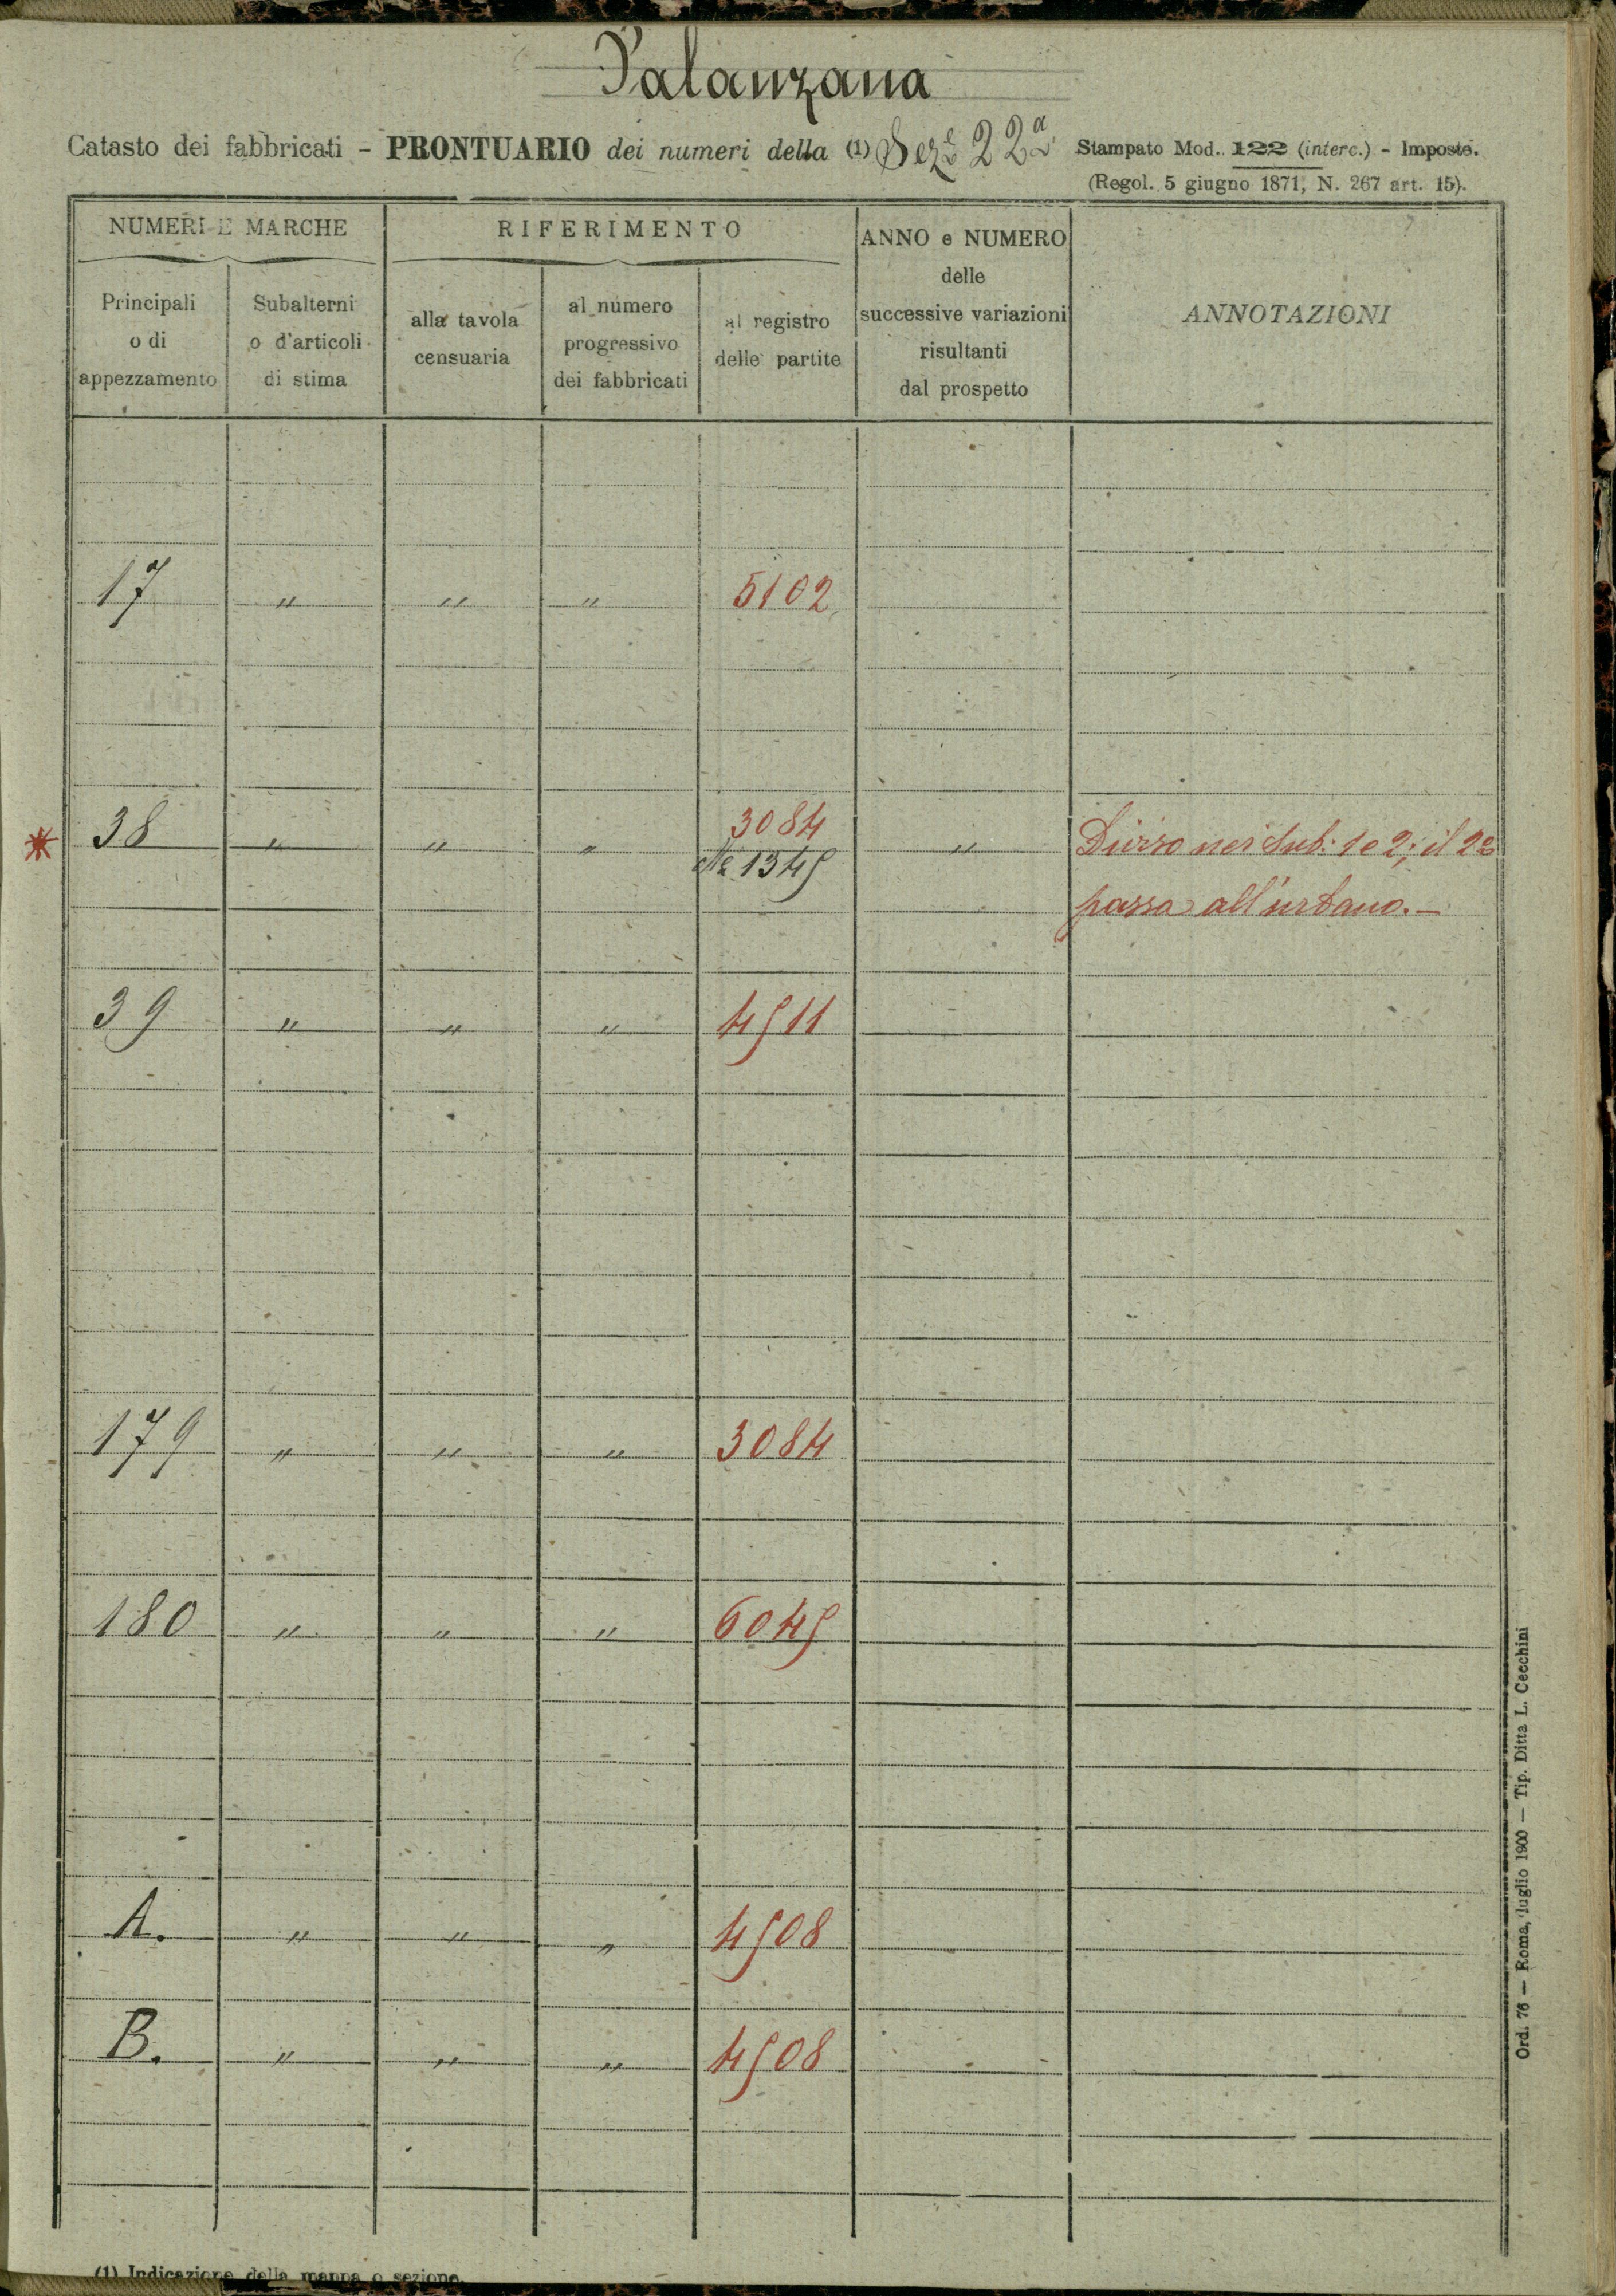 Palanzana
Catasto dei fabbricati - PRONTUARIO dei numeri della (1) Sez.e 22a Stampato Mod. 122 (interc.) - Imposte.
(Regol. 5 giugno 1871, N. 267 art. 15).
NUMERI E MARCHE
RIFERIMENTO
ANNO e NUMERO
delle
successive variazioni
risultanti
dal prospetto
ANNOTAZIONI
Principali
o di
appezzamento
Subalterni
o d'articoli
di stima
alla tavola
censuaria
al numero
progressivo
dei fabbricati
al registro
delle partite
17 " " " 5102
3084
* 38 " " " 1345 " Diviso nei Sub: 1 e 2; il 2o
passa all'urbano. —
39 " " " 4511
179 " " " 3084
180 " " " 6045
A. " " " 4508
B. " " " 4508
(1) Indicazione della mappa o sezione.
Ord. 76 — Roma, luglio 1900 — Tip. Ditta L. Cecchini